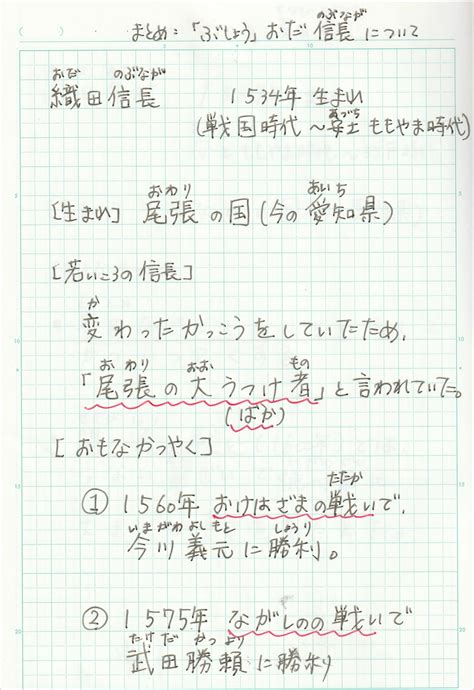 まとめ:「ぶしょう」おだ信長について
のぶなが
おだ のぶなが
織田信長 1534年 生まれ
(戦国時代〜安土ももやま時代)
あづち
[生まれ] 尾張の国(今の愛知県)
おわり あいち
[若いころの信長]
か
変わったかっこうをしていたため、
おわり おお もの
「尾張の大うつけ者」と言われていた。
(ばか)
[おもなかつやく]
たたか
① 1560年 おけはざまの戦いで、
いまがわよしもと しょうり
今川義元に勝利。
② 1575年 ながしのの戦いで
たけだ かつより
武田勝頼に勝利